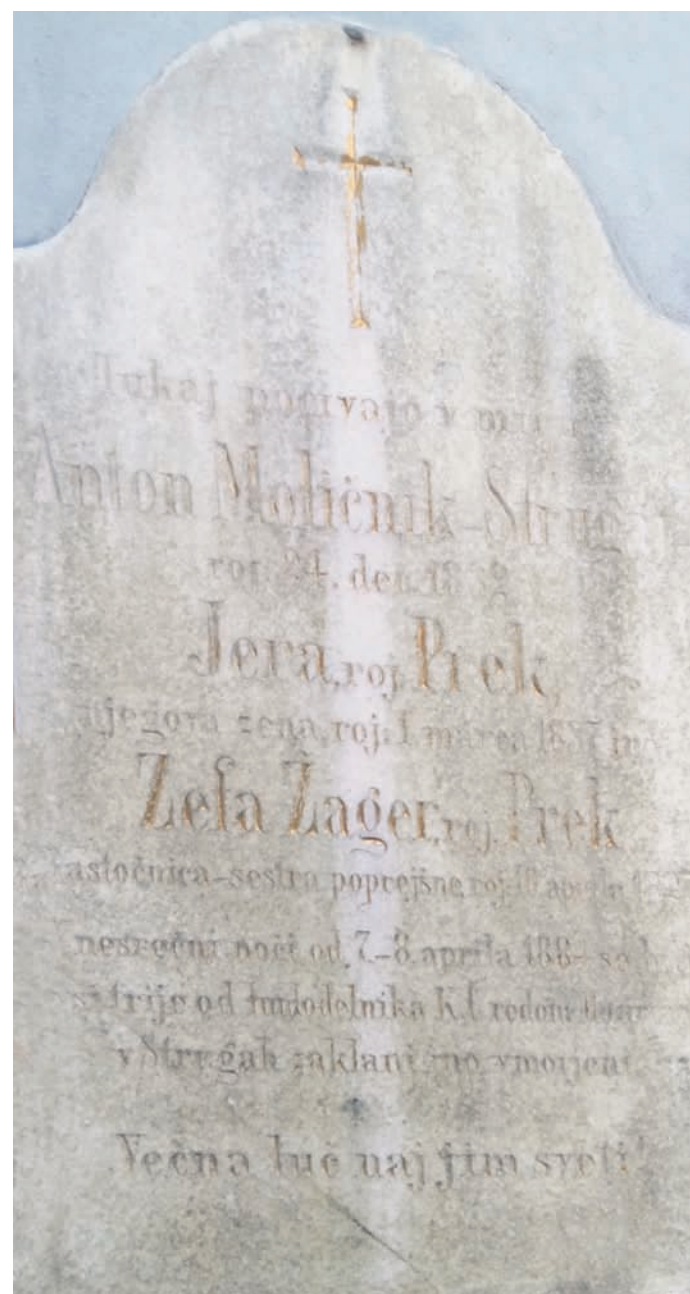 Tukaj počivajo v
Anton Moličnik-Strugar
roj. 24. dec.
Jera, roj. Prek,
njegova žena, roj. 1. marca in
Zefa Žager, roj. Prek
sestra poprejšne, roj.
nesrečni noči od 7-8. aprila
trije od hudodelnika K. C. rodom
v Strugah zaklani ino vmorjeni
Večna luč naj jim sveti!